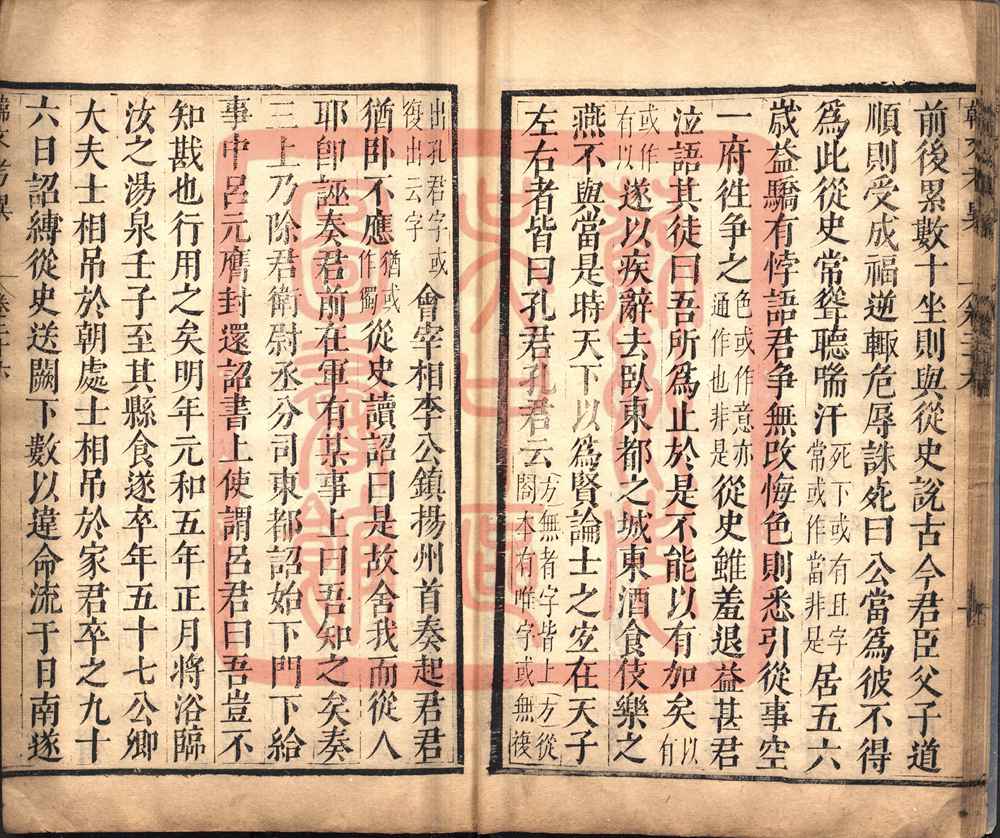 前後累數十坐則與從史說古今君臣父子道
順則受成福逆輙危辱誅死曰公當爲彼不得
爲此從史常聳聽喘汗死下或有且字常或作當非是居五六
歲益驕有悖語君争無改悔色則悉引從事空
一府徃争之色或作意亦通作也非是從史雖羞退益甚君
泣語其徒曰吾所爲止於是不能以有加矣以有或作有以
遂以疾辭去卧東都之城東酒食伎樂之
燕不與當是時天下以爲賢論士之宜在天子
左右者皆曰孔君孔君云方無者字皆上方從閣本有唯字或無複
出孔君字或復出云字會宰相李公鎮揚州首奏起君君
猶卧不應猶或作獨從史讀詔曰是故舍我而從人
耶卽誣奏君前在軍有某事上曰吾知之矣奏
三上乃除君衛尉丞分司東都詔始下門下給
事中呂元膺封還詔書上使謂呂君曰吾豈不
知戡也行用之矣明年元和五年正月將浴臨
汝之湯泉壬子至其縣食遂卒年五十七公卿
大夫士相吊於朝處士相吊於家君卒之九十
六日詔縛從史送闕下數以違命流于日南遂
韓文考異
卷二十六